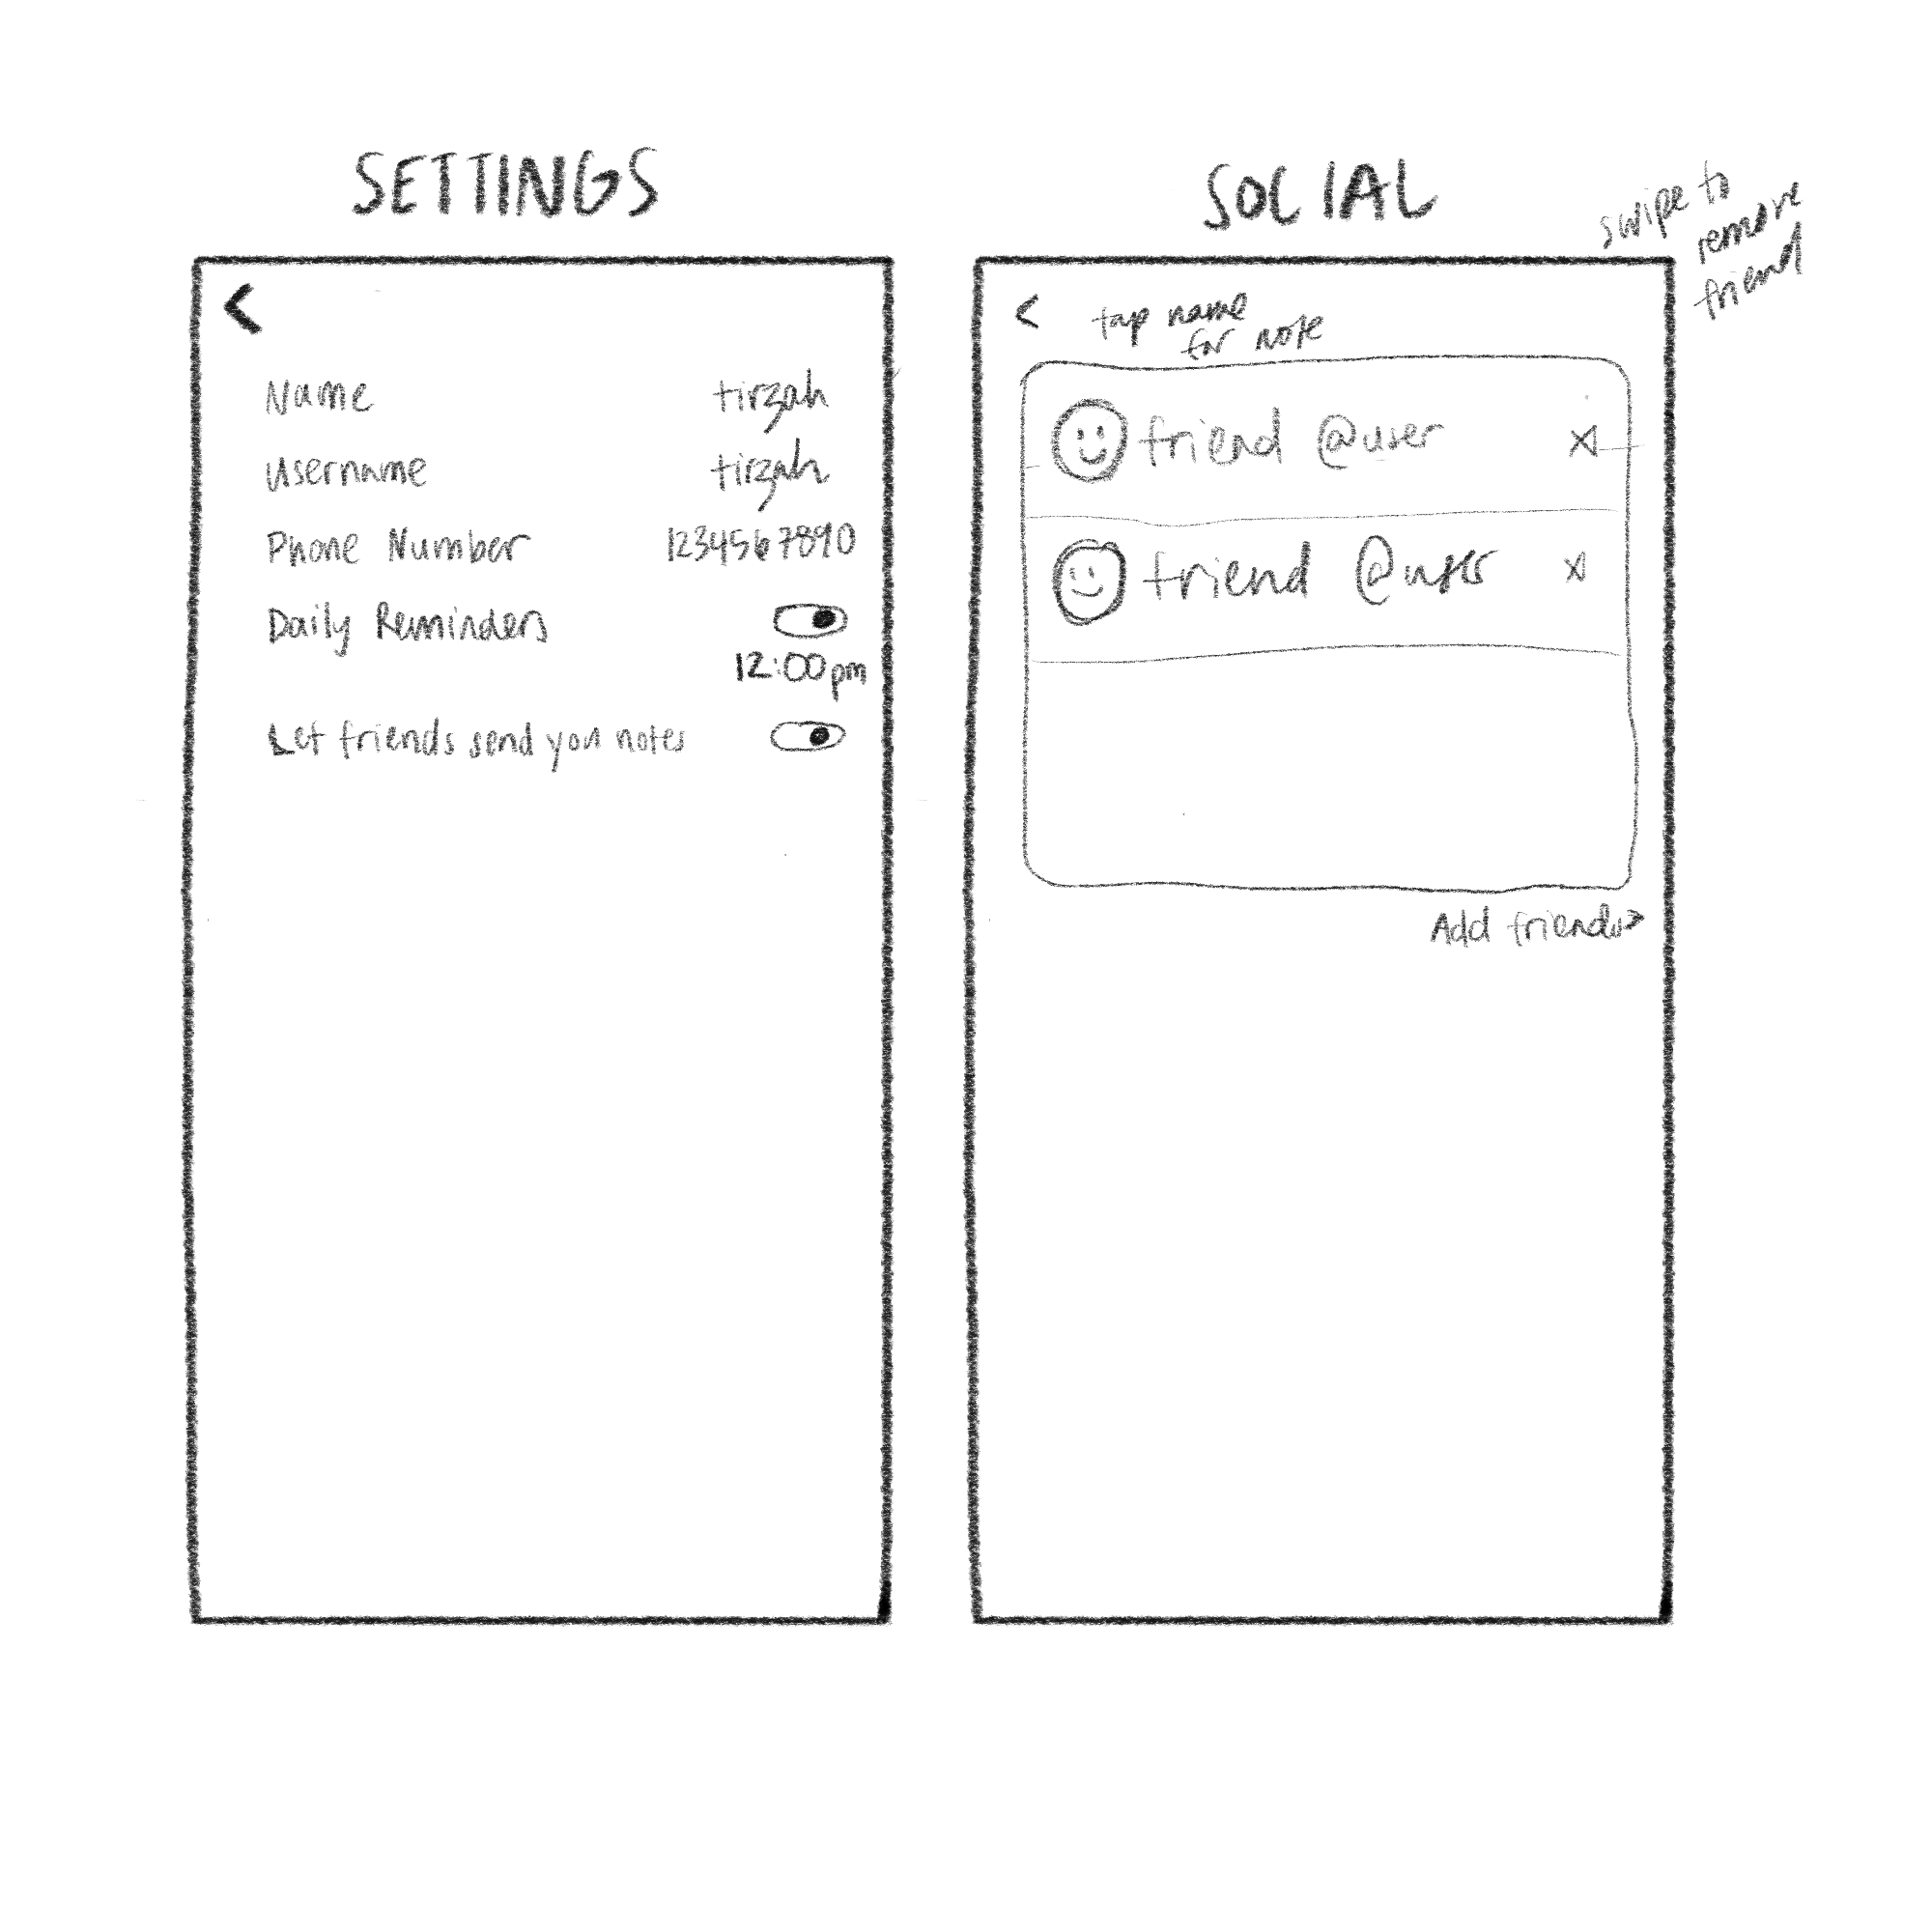 SETTINGS
<
Name tirzah
username tirzah
Phone Number 1234567890
Daily Reminders
12:00pm
Let friends send you notes
SOCIAL
swipe to
remove
friend
<
tap name
for note
friend @user x
friend @user x
Add friends>